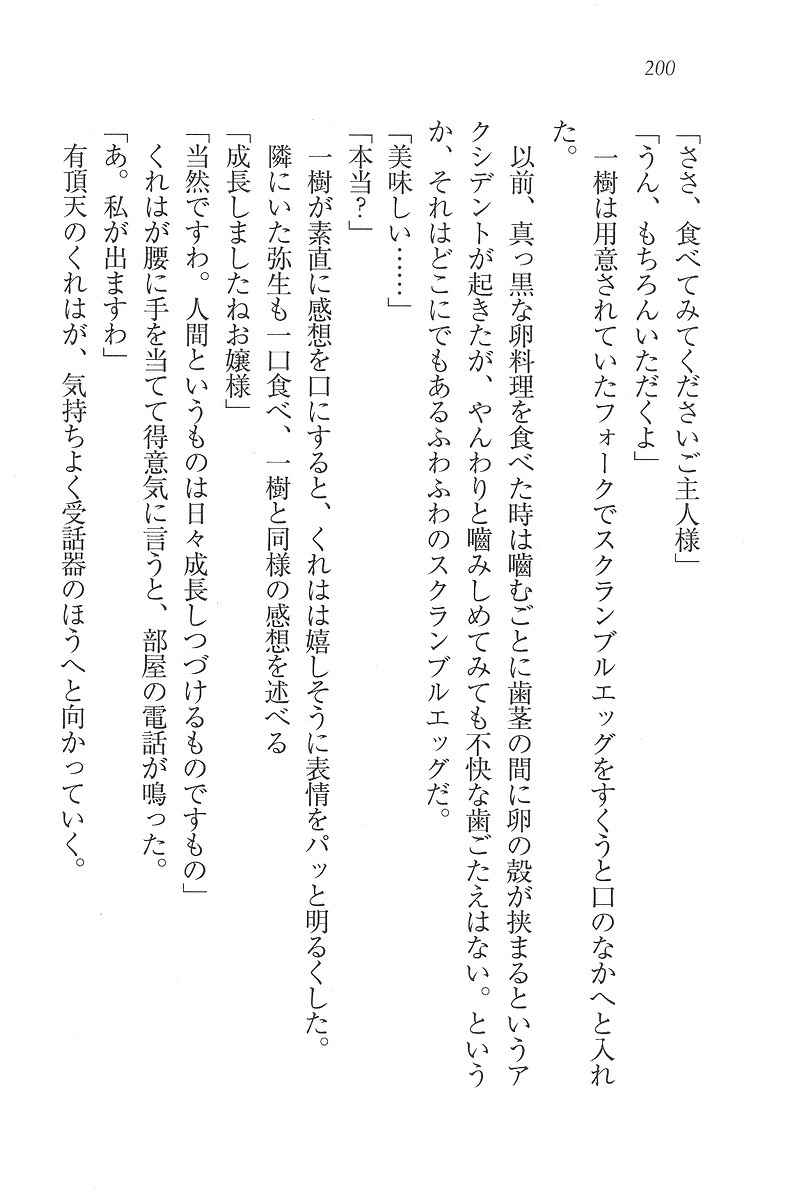 200
「ささ、食べてみてくださいご主人様」
「うん、もちろんいただくよ」
一樹は用意されていたフォークでスクランブルエッグをすくうと口のなかへと入れ
た。
以前、真っ黒な卵料理を食べた時は嚙むごとに歯茎の間に卵の殻が挟まるというア
クシデントが起きたが、やんわりと嚙みしめてみても不快な歯ごたえはない。という
か、それはどこにでもあるふわふわのスクランブルエッグだ。
「美味しい……」
「本当？」
一樹が素直に感想を口にすると、くれはは嬉しそうに表情をパッと明るくした。
隣にいた弥生も一口食べ、一樹と同様の感想を述べる
「成長しましたねお嬢様」
「当然ですわ。人間というものは日々成長しつづけるものですもの」
くれはが腰に手を当てて得意気に言うと、部屋の電話が鳴った。
「あ。私が出ますわ」
有頂天のくれはが、気持ちよく受話器のほうへと向かっていく。